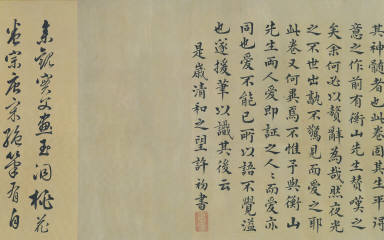 其神髓者也此卷固其生平得
意之作前有衡山先生贊嘆之
矣余何必以贅辭為哉然夜光
之不世出孰不驚見而愛之耶
此卷又何異焉不惟予與衡山
先生兩人愛即證之人人而愛亦
同也愛不能已所以語不覺溢
也遂援筆以識其後云
是歲清和之望許初書
余觀實父畫玉洞桃花
宗唐宋絕筆有自